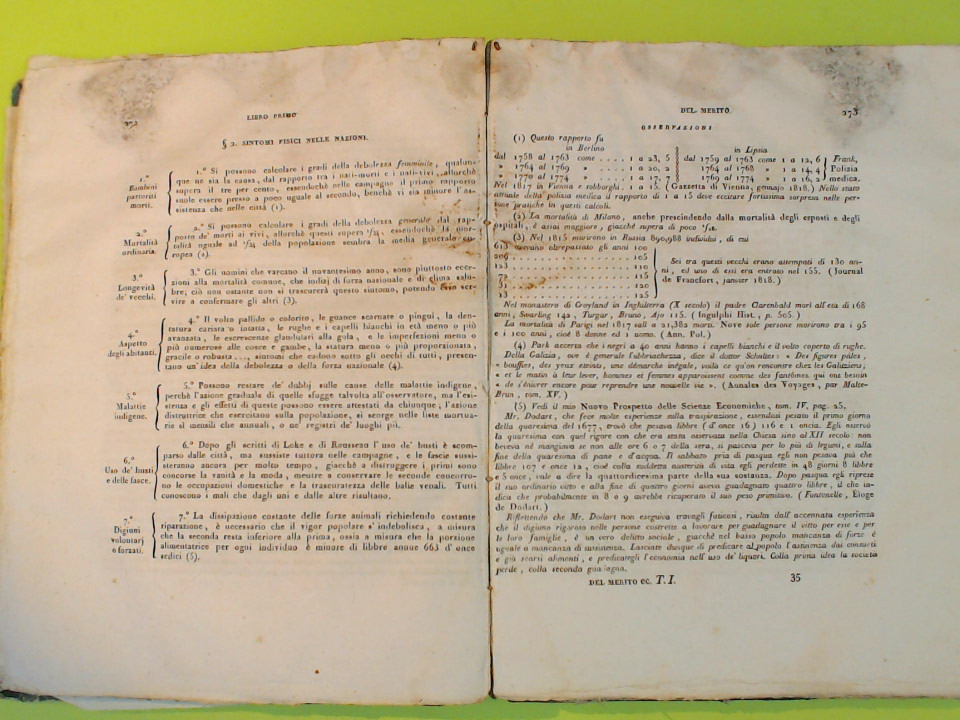 272
LIBRO PRIMO
§ 2. SINTOMI FISICI NELLE NAZIONI.
1.°
Bambini
partoriti
morti.
1.° Si possono calcolare i gradi della debolezza femminile, qualun-
que ne sia la causa, dal rapporto tra i nati-morti e i nati-vivi, allorchè
supera il tre per cento, essendochè nelle campagne il primo rapporto
suole essere presso a poco uguale al secondo, benchè vi sia minore l'as-
sistenza che nelle città (1).
2.°
Mortalità
ordinaria.
2.° Si possono calcolare i gradi della debolezza generale dal rap-
porto de' morti ai vivi, allorchè questi supera 1/34, essendochè la mor-
talità uguale ad 1/34 della popolazione sembra la media generale eu-
ropea (2).
3.°
Longevità
de' vecchi.
3.° Gli uomini che varcano il novantesimo anno, sono piuttosto ecce-
zioni alla mortalità comune, che indizj di forza nazionale e di clima salu-
bre; ciò non ostante non si trascurerà questo sintomo, potendo esso ser-
vire a confermare gli altri (3).
4.°
Aspetto
degli abitanti.
4.° Il volto pallido o colorito, le guance scarnate o pingui, la den-
tatura cariata o intatta, le rughe e i capelli bianchi in età meno o più
avanzata, le escrescenze glandulari alla gola, e le imperfezioni meno o
più numerose alle cosce e gambe, la statura meno o più proporzionata,
gracile o robusta..., sintomi che cadono sotto gli occhi di tutti, presen-
tano un'idea della debolezza o della forza nazionale (4).
5.°
Malattie
indigene.
5.° Possono restare de' dubbj sulle cause delle malattie indigene,
perchè l'azione graduale di quelle sfugge talvolta all'osservatore, ma l'esi-
stenza e gli effetti di queste possono essere attestati da chiunque; l'azione
distruttrice che esercitano sulla popolazione, si scorge nelle liste mortua-
rie sì mensili che annuali, o ne' registri de' luoghi pii.
6.°
Uso de' busti
e delle fasce.
6.° Dopo gli scritti di Loke e di Rousseau l'uso de' busti è scom-
parso dalle città, ma sussiste tuttora nelle campagne, e le fascie sussi-
steranno ancora per molto tempo, giacchè a distruggere i primi sono
concorse la vanità e la moda, mentre a conservare le seconde concorro-
no le occupazioni domestiche e la trascuratezza delle balie venali. Tutti
conoscono i mali che dagli uni e dalle altre risultano.
7.°
Digiuni
volontarj
o forzati.
7.° La dissipazione costante delle forze animali richiedendo costante
riparazione, è necessario che il vigor popolare s'indebolisca, a misura
che la seconda resta inferiore alla prima, ossia a misura che la porzione
alimentatrice per ogni individuo è minore di libbre annue 663 d'once
sedici (5).
DEL MERITO.
273
OSSERVAZIONI
(1) Questo rapporto fu
in Berlino
in Lipsia
dal 1758 al 1763 come .... 1 a 23, 5 dal 1759 al 1763 come 1 a 12, 6 Frank,
» 1764 al 1769 » ..... 1 a 20, 2 1764 al 1768 » 1 a 14, 4 Polizia
» 1770 al 1774 » ..... 1 a 17, 7 1769 al 1774 » 1 a 16, 2 medica.
Nel 1817 in Vienna e sobborghi. 1 a 15. (Gazzetta di Vienna, gennajo 1818.) Nello stato
attuale della polizia medica il rapporto di 1 a 15 deve eccitare fortissima sorpresa nelle per-
sone pratiche in questi calcoli.
(2) La mortalità di Milano, anche prescindendo dalla mortalità degli esposti e degli
ospitali, è assai maggiore, giacchè supera di poco
(3) Nel 1815 morirono in Russia 890,988 individui, di cui
613 avevano oltrepassato gli anni 100
209 ..... 105
123 ..... 110
72 ..... 115
31 ..... 120
13 ..... 125
Sei tra questi vecchi erano attempati di 130 an-
ni, ed uno di essi era entrato nel 155. (Journal
de Francfort, janvier 1818.)
Nel monastero di Groyland in Inghilterra (X secolo) il padre Clarenbald morì all'età di 168
anni, Swarling 142, Turgar, Bruno, Ajo 115. (Ingulphi Hist., p. 505.)
La mortalità di Parigi nel 1817 salì a 21,382 morti. Nove sole persone morirono tra i 95
e i 100 anni, cioè 8 donne ed 1 uomo. (Ann. Pol.)
(4) Park accerta che i negri a 40 anni hanno i capelli bianchi e il volto coperto di rughe.
Della Galizia, ove è generale l'ubbriachezza, dice il dottor Schultes: « Des figures pâles,
» bouffies, des yeux éteints, une démarche inégale, voilà ce qu'on rencontre chez les Galiziens;
» et le matin à leur lever, hommes et femmes apparoissent comme des fantômes qui ont besoin
» de s'enivrer encore pour reprendre une nouvelle vie ». (Annales des Voyages, par Malte-
Brun, tom. XV.)
(5) Vedi il mio Nuovo Prospetto delle Scienze Economiche, tom. IV, pag. 25.
Mr. Dodart, che fece molte esperienze sulla traspirazione, essendosi pesato il primo giorno
della quaresima del 1677, trovò che pesava libbre (d'once 16) 116 e 1 oncia. Egli osservò
la quaresima con quel rigore con che era stata osservata nella Chiesa sino al XII secolo: non
beveva nè mangiava se non alle ore 6 o 7 della sera, si pasceva per lo più di legumi, e sulla
fine della quaresima di pane e d'acqua. Il sabbato pria di pasqua egli non pesava più che
libbre 107 e once 12, cioè colla suddetta austerità di vita egli perdette in 48 giorni 8 libbre
e 5 once, vale a dire la quattordicesima parte della sua sostanza. Dopo pasqua egli riprese
il suo ordinario vitto e alla fine di quattro giorni aveva guadagnato quattro libbre, il che in-
dica che probabilmente in 8 o 9 avrebbe ricuperato il suo peso primitivo. (Fontenelle, Eloge
de Dodart.)
Riflettendo che Mr. Dodart non eseguiva travagli faticosi, risulta dall'accennata esperienza
che il digiuno rigoroso nelle persone costrette a lavorare per guadagnare il vitto per esse e per
le loro famiglie, è un vero delitto sociale, giacchè nel basso popolo mancanza di forze è
uguale a mancanza di sussistenza. Lasciate dunque di predicare al popolo l'astinenza dai consueti
e già scarsi alimenti, e predicategli l'economia nell'uso de' liquori. Colla prima idea la società
perde, colla seconda guadagna.
DEL MERITO ec. T. I.
35